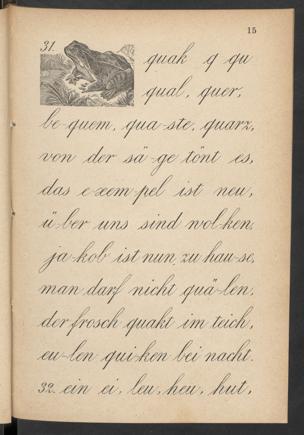 15
31. quak q qu
qual, quer,
be-quem, qua-ste, quarz,
von der sä-ge tönt es,
das e-xem-pel ist neu,
ü-ber uns sind wol-ken,
ja-kob ist nun zu hau-se,
man darf nicht quä-len,
der frosch quakt im teich,
eu-len qui-ken bei nacht.
32. ein ei, leu, heu, hut,